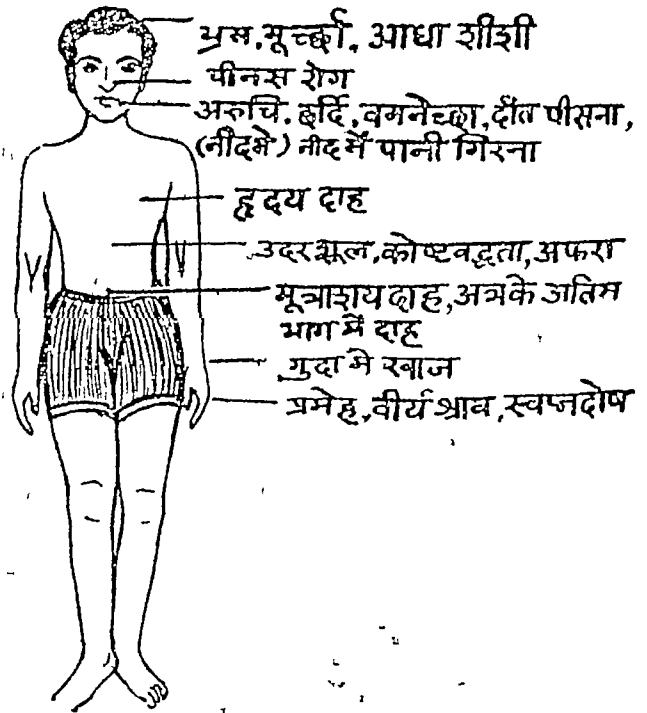 भ्रम, मूर्च्छा, आधा शीशी
पीनस रोग
अरुचि, छर्दि, वमनेच्छा, दाँत पीसना,
(नींदमे) नींद में पानी गिरना
हृदय दाह
उदरशूल, कोष्टवद्धता, अफरा
मूत्राशय दाह, अत्रके अतिम
भाग में दाह
गुदा मे खाज
प्रमेह, वीर्य श्राव, स्वप्नदोष